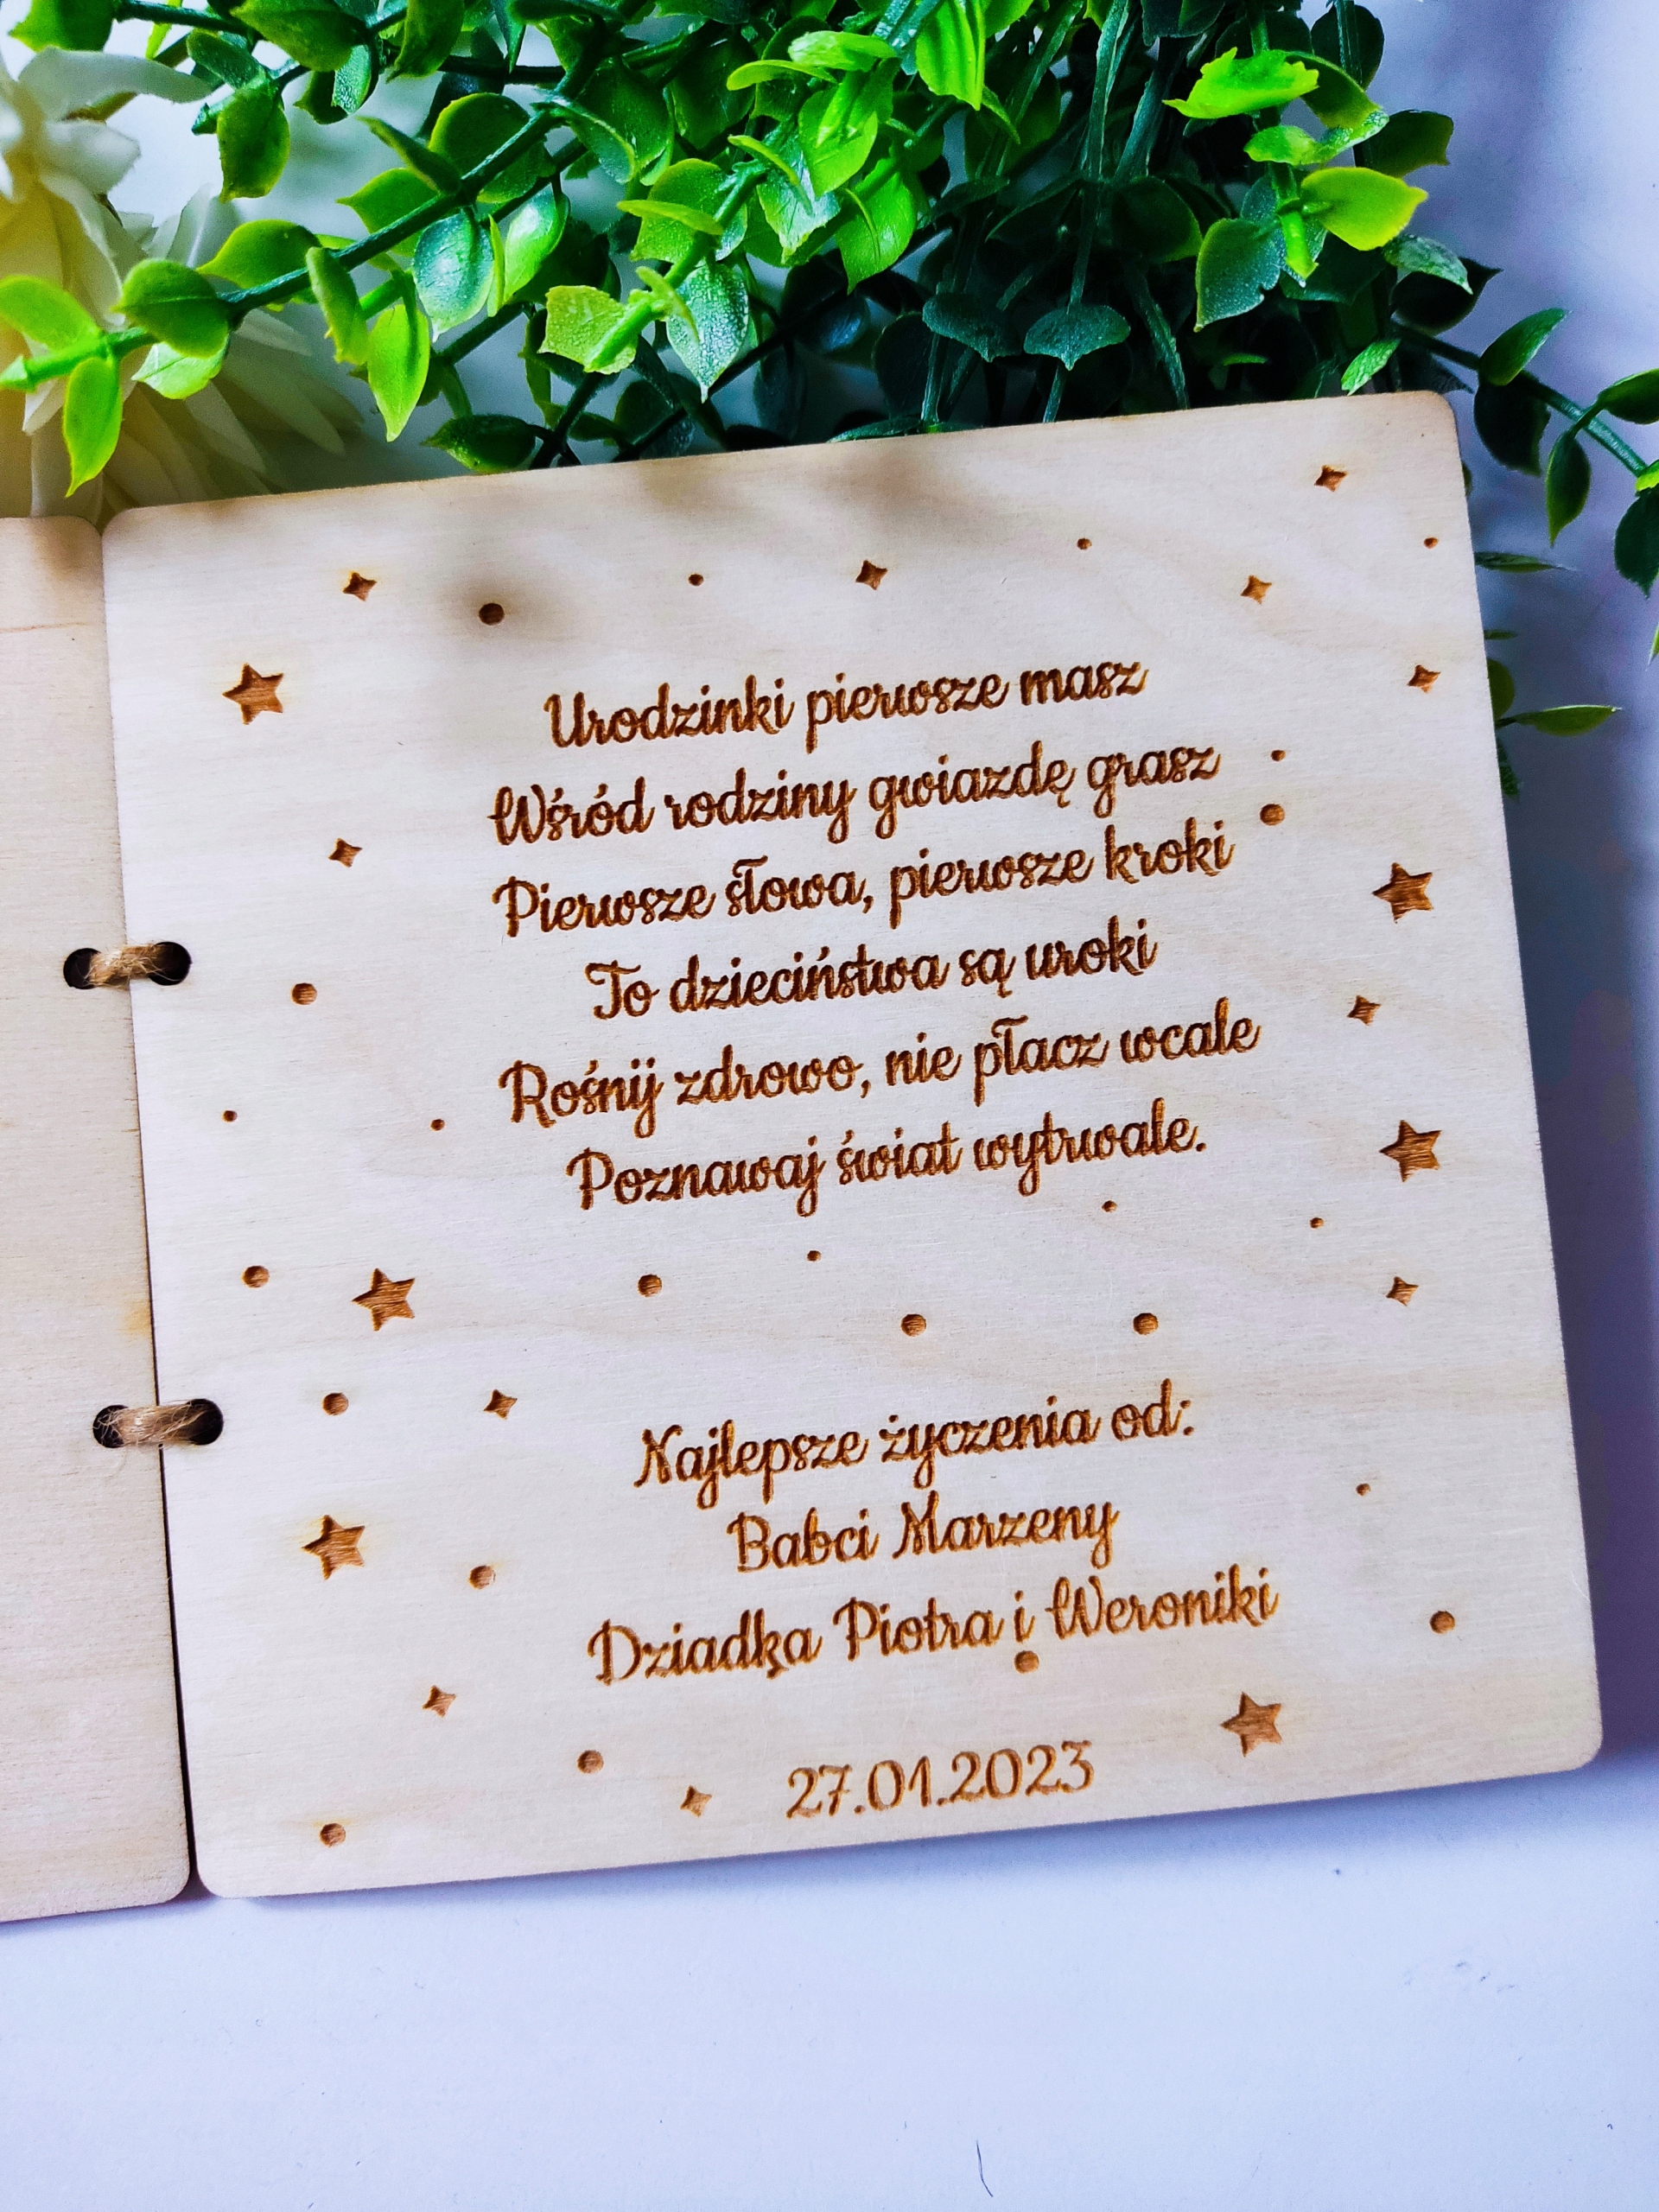 Urodzinki pierwsze masz
Wśród rodziny gwiazdę grasz
Pierwsze słowa, pierwsze kroki
To dzieciństwa są uroki
Rośnij zdrowo, nie płacz wcale
Poznawaj świat wytrwale.
Najlepsze życzenia od:
Babci Marzeny
Dziadka Piotra i Weroniki
27.01.2023